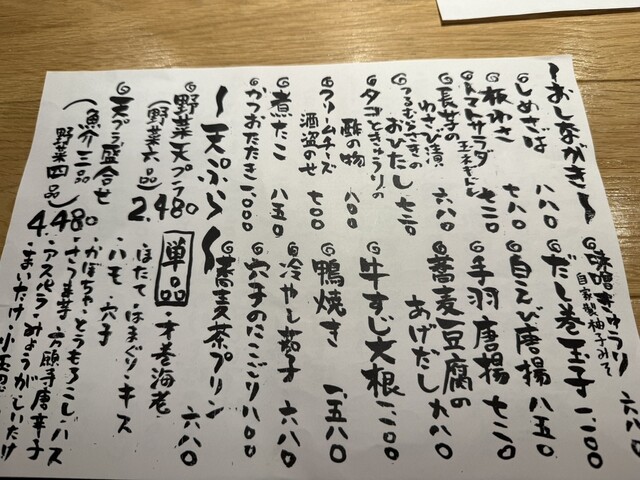 〜おしながき〜
しめさば 八八〇
板わさ 七八〇
トマトサラダ
玉ネギドレ 七三〇
長芋の
わさび漬 六八〇
つるむらさきの
おひたし 七三〇
タコときゅうりの
酢の物 八〇〇
クリームチーズ
酒盗のせ 七〇〇
煮たこ 八五〇
かつおたたき 一〇〇〇
味噌きゅうり
自家製柚子みそ
六八〇
だし巻玉子 一.一〇〇
白えび唐揚 八五〇
手羽唐揚 七三〇
蕎麦豆腐の
あげだし 九八〇
牛すじ大根 一.一〇〇
鴨焼き 一.五八〇
冷やし茄子 六八〇
穴子のにこごり 八〇〇
蕎麦茶プリン 六八〇
〜天ぷら〜
野菜天プラ
(野菜六品) 2.480
天プラ盛合せ
(魚介三品
野菜四品) 4.480
単品
・才巻海老
・ほたて・はまぐり・キス
・ハモ・穴子
・かぼちゃ・とうもろこし・ハス
・さつま芋 万願寺唐辛子
・アスパラ・みょうが・しいたけ
・まいたけ・小玉